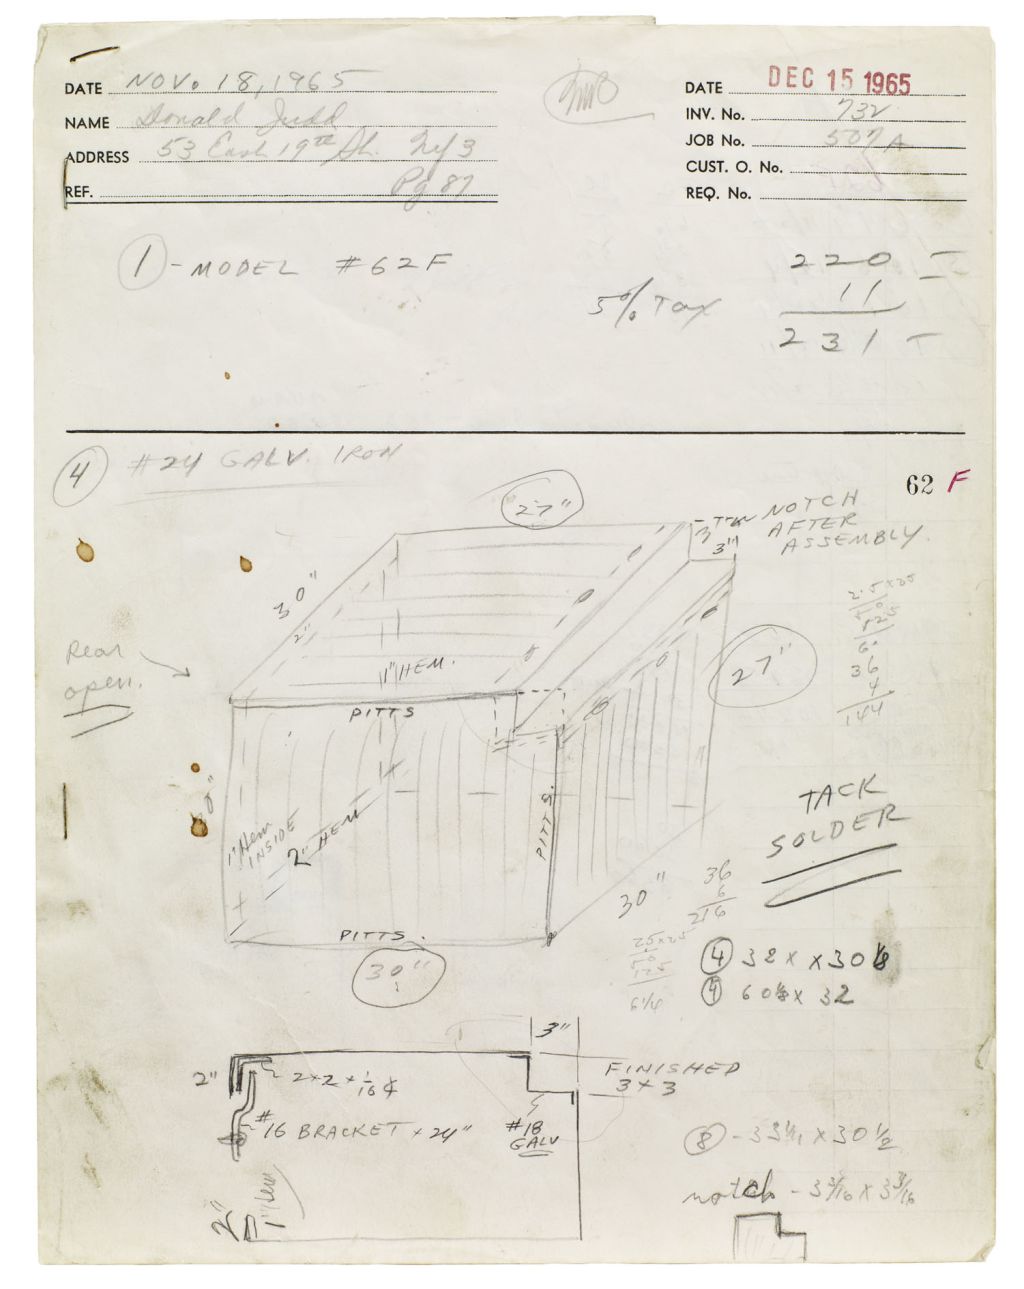 DATE NOV. 18, 1965
NAME Donald Judd
ADDRESS 53 East 19th St. NY 3
REF. Pg 87
DATE DEC 15 1965
INV. No. 732
JOB No. 507 A
CUST. O. No.
REQ. No.
1 - MODEL #62F
220
5% Tax 11
231
4 #24 GALV. IRON
62 F
27"
NOTCH
AFTER
ASSEMBLY.
3"
3"
30"
2"
Rear
open.
1" HEM.
PITTS
27"
36
4
144
TACK
SOLDER
1" Hem
INSIDE
2" HEM
PITTS.
30"
36
6
216
PITTS.
30"
25x25
4 32 x x 30 1/8
4 60 1/8 x 32
3"
2"
2 x 2 x 1/16
FINISHED
3 x 3
#16 BRACKET x 24"
#18
GALV
8 - 33 1/2 x 30 1/2
2"
1" Hem
notch - 3 3/16 x 3 3/16